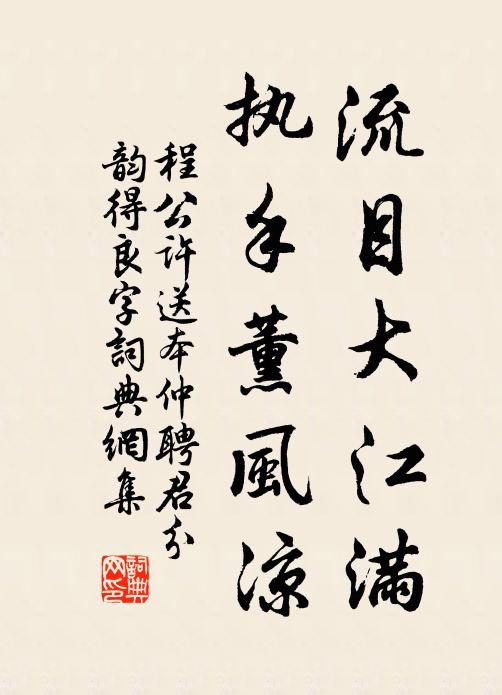 流目大江满
执手薰風涼
程公许送本仲聘君分
韵得良字詞典網集
詞典网印